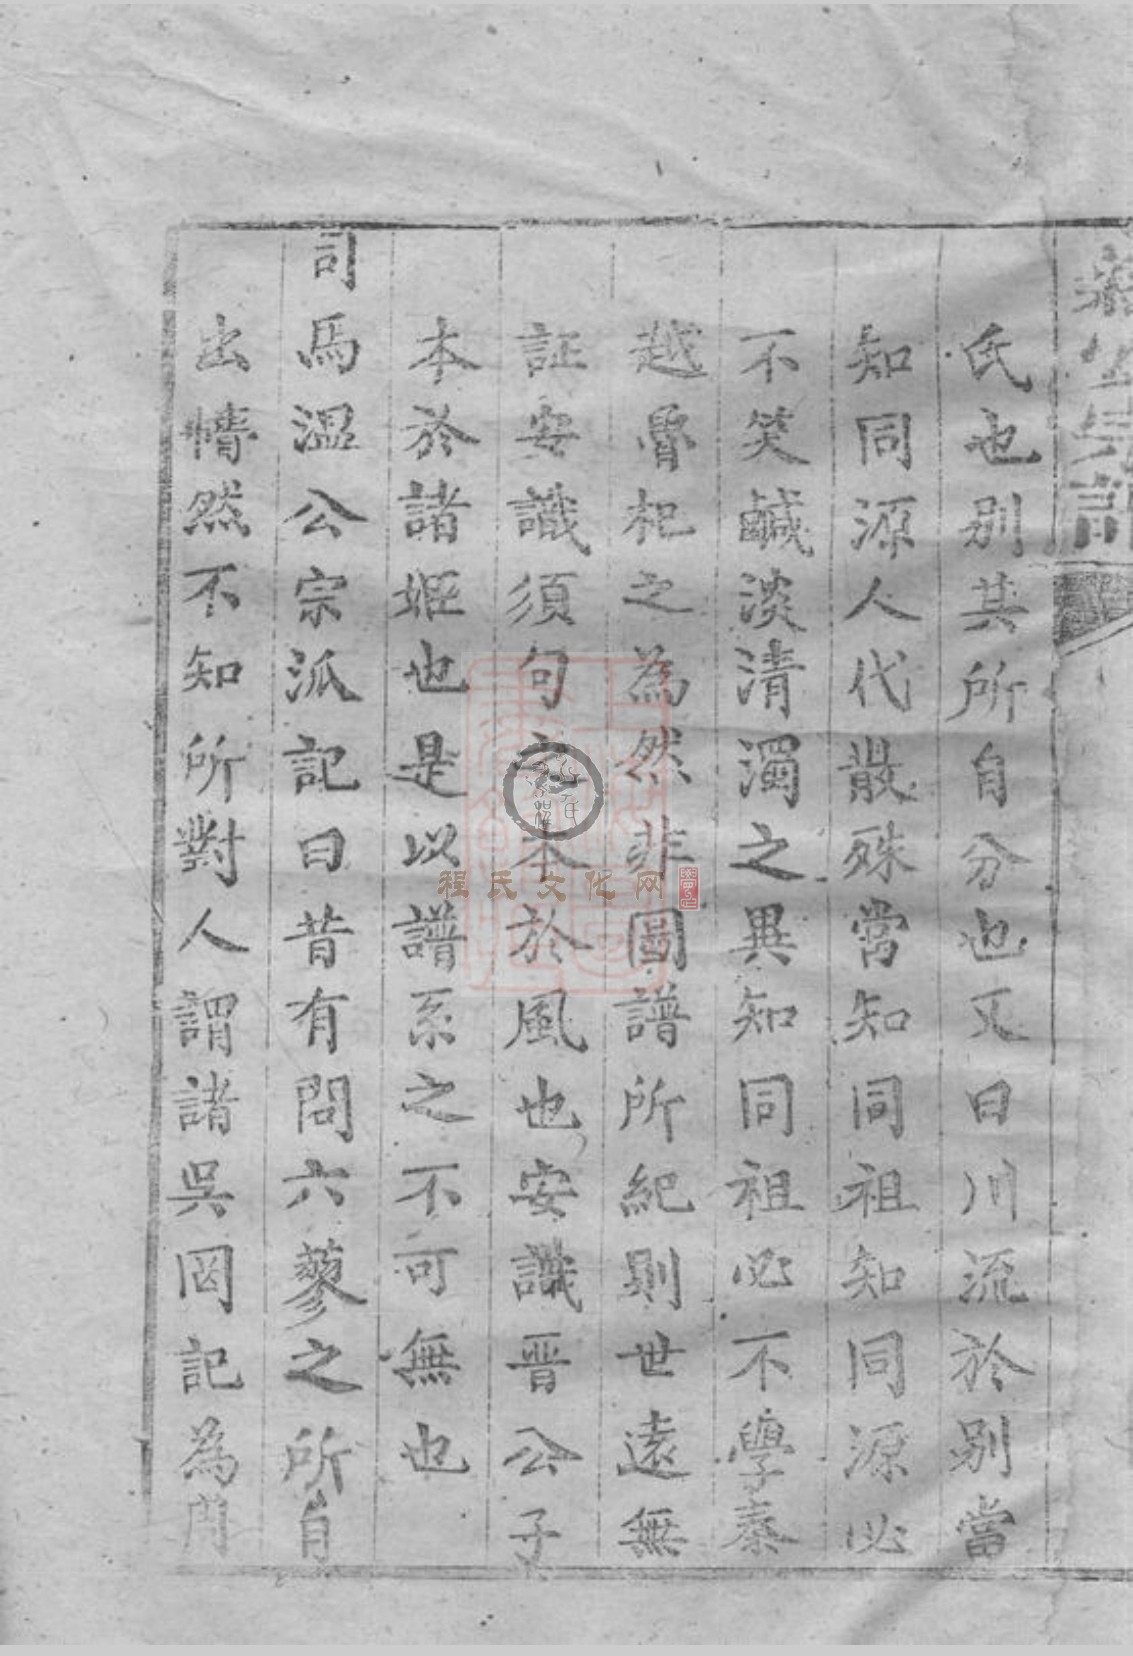 氏也别其所自分也又曰川流於别當
知同源人代散殊當知同祖知同源必
不笑鹹淡清濁之異知同祖必不學秦
越魯杞之為然非圖譜所紀則世遠無
証安識須句之本於風也安識晋公子
本於諸姬也是以譜系之不可無也
司馬温公宗派記曰昔有問六蓼之所自
出懵然不知所對人謂諸吳罔記為
程氏文化网